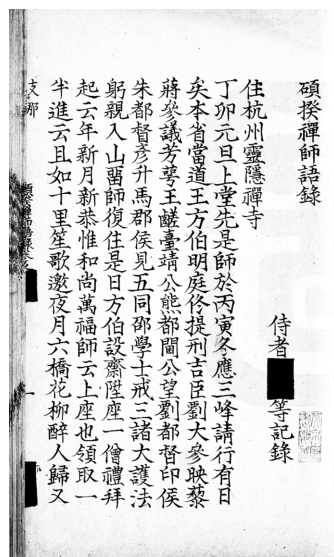 碩揆禪師語錄
侍者
等記錄
住杭州靈隱禪寺
丁卯元旦上堂先是師於丙寅冬應三峰請行有日
矣本省當道王方伯明庭佟提刑吉臣劉大參映藜
蔣參議芳蕚王鹾臺靖公熊都閫公望劉都督印侯
朱都督彥升馬郡侯見五同邵學士戒三諸大護法
躬親入山畱師復住是日方伯設齋陞座一僧禮拜
起云年新月新恭惟和尚萬福師云上座也領取一
半進云且如十里笙歌邀夜月六橋花柳醉人歸又
支那
一